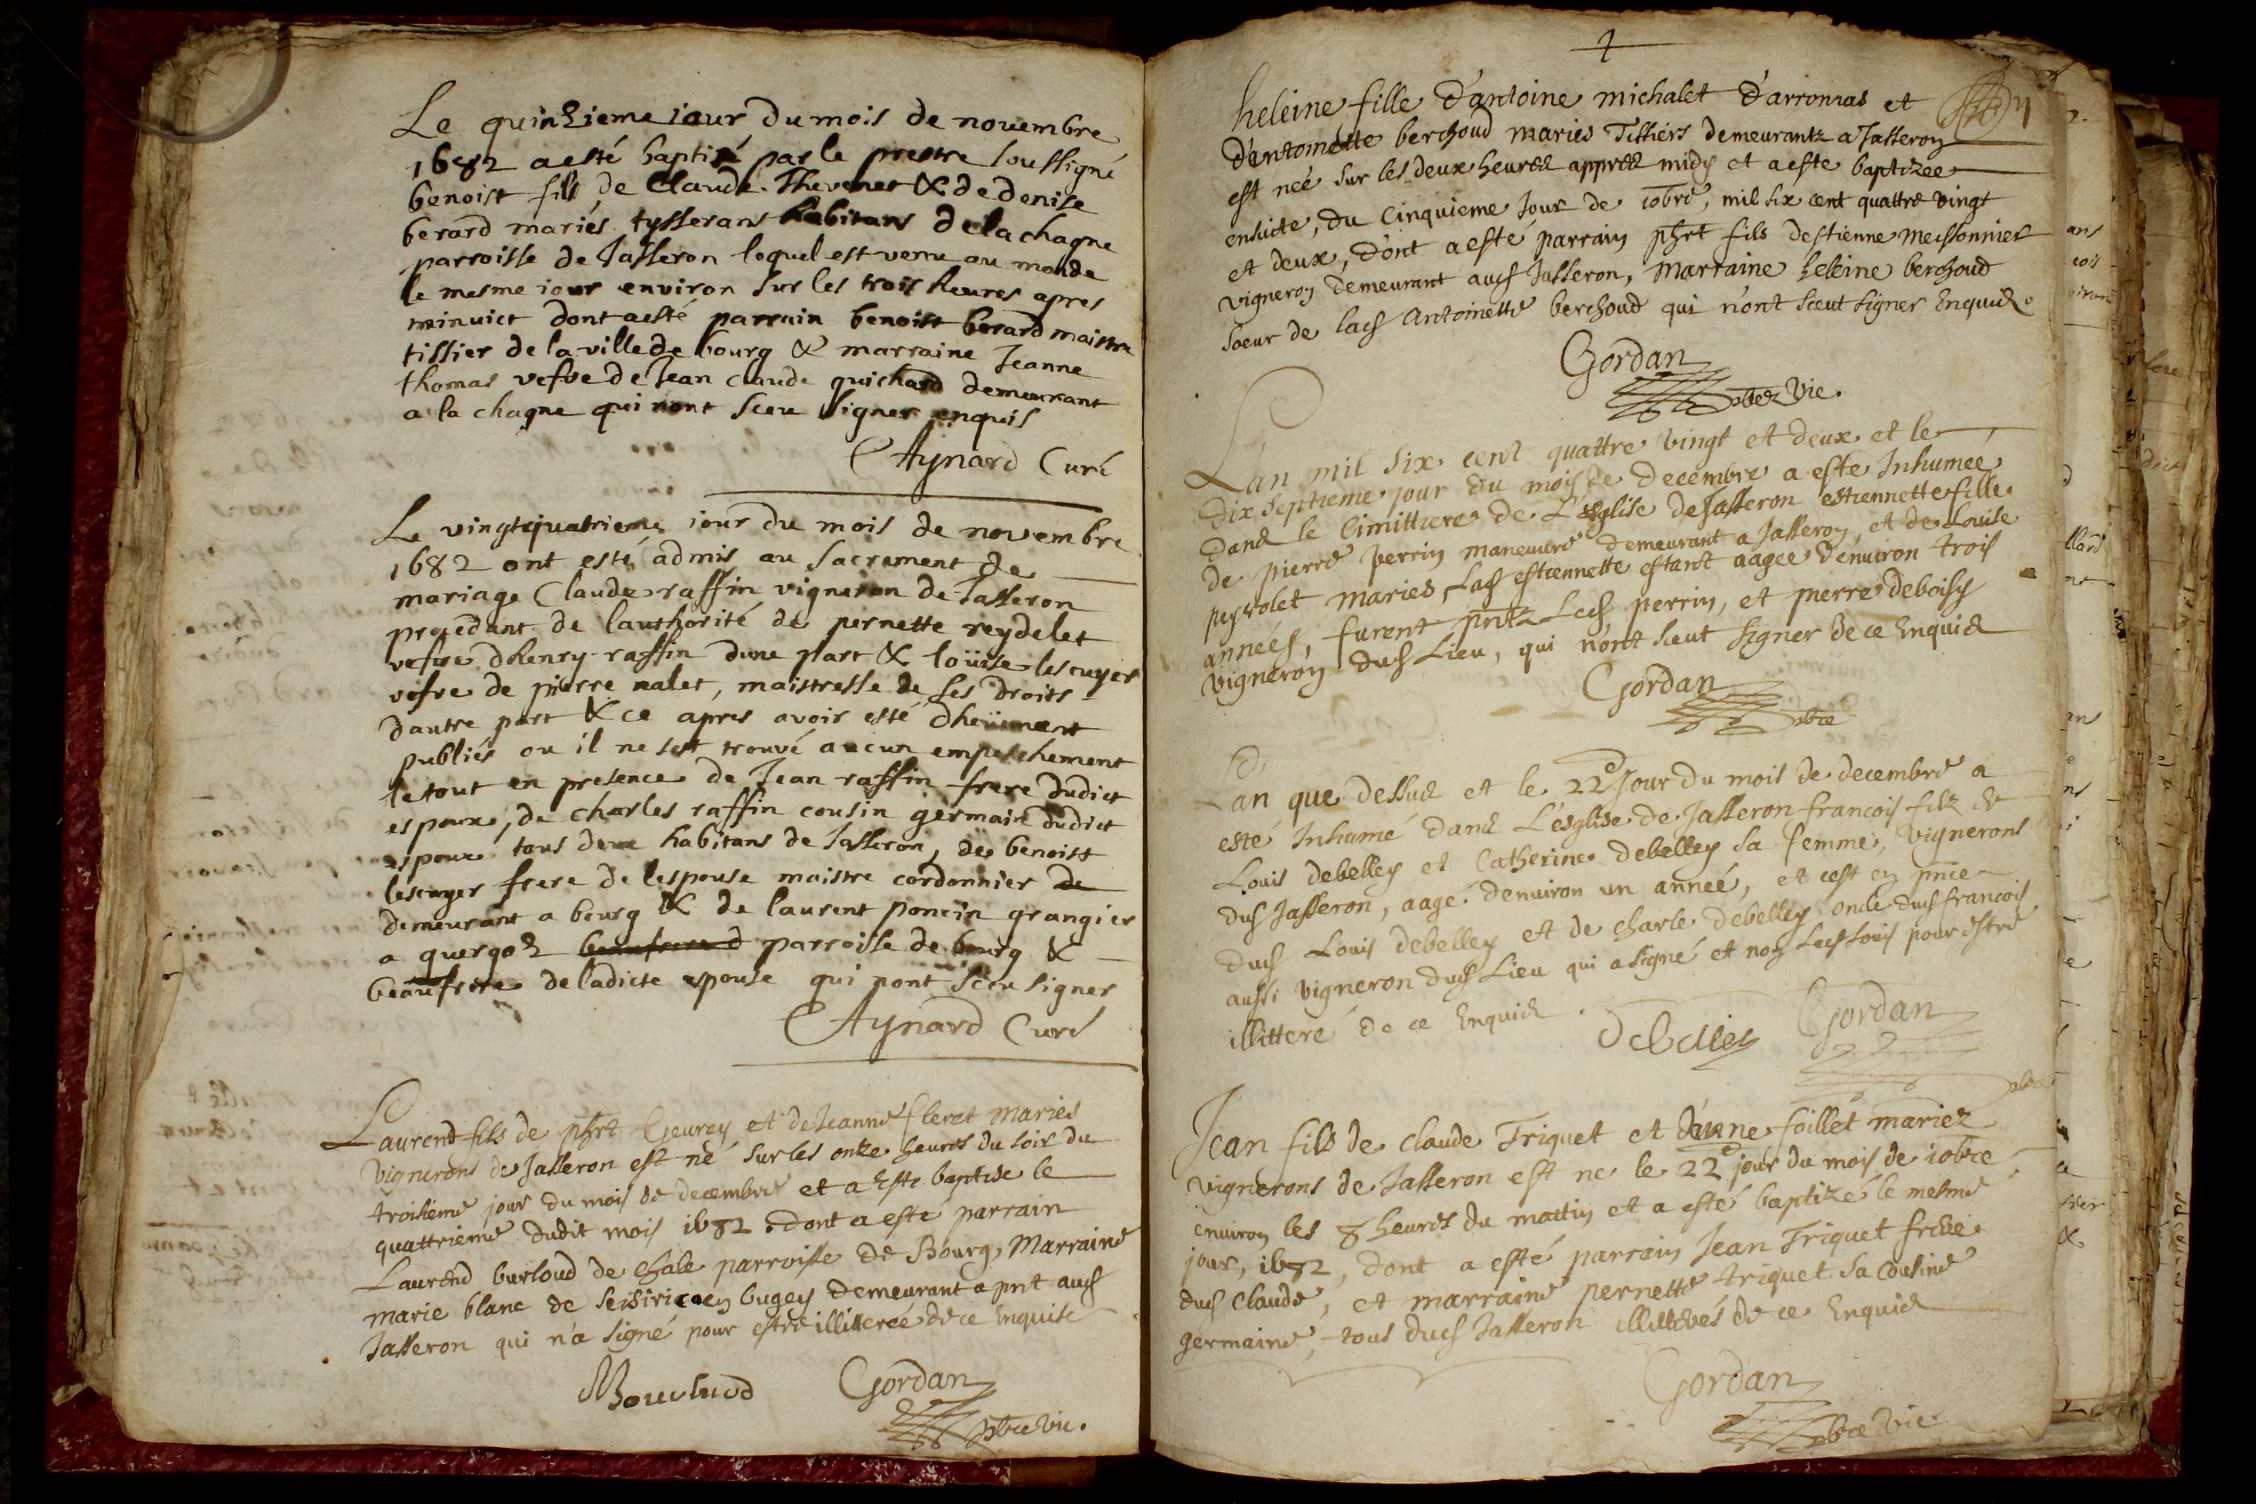 Le quinzieme iour du mois de novembre
1682 a esté baptizé par le prestre soussigné
benoist fils de Claude Thevenet & de denise
berard mariés tysserans habitans de la chagne
parroisse de Jasseron lequel est venu au monde
le mesme iour environ sur les trois heures apres
minuict dont a esté parrain benoist berard maistre
tissier de la ville de bourg & marraine Jeanne
thomas vefve de Jean claude guichard demeurant
a la chagne qui nont sceu signer enquis
Aynard Curé
Le vingtquatrieme iour du mois de novembre
1682 ont esté admis au sacrement de
mariage Claude raffin vigneron de Jasseron
procedant de lauthorité de pernette reydelet
vefve dhenry raffin dune part & loüise lescuyer
vefve de pierre nalet, maistresse de ses droits
dautre part & ce apres avoir esté dheüment
publiés ou il ne sest trouvé aucun empeschement
le tout en presence de Jean raffin frere dudict
espoux, de charles raffin cousin germain dudict
espoux tous deux habitans de Jasseron, de benoist
lescuyer frere de lespouse maistre cordonnier de
demeurant a bourg & de laurent poncin grangier
a quergoz beaufrere d parroisse de bourg &
beaufrere de ladicte espouse qui nont sceu signer
Aynard Curé
Laurend fils de phrt Geurey et de Jeanne Cleret maries
vignerons de Jasseron est né sur les onze heures du soir du
troisieme jour du mois de decembre et a este baptise le
quattrieme dudit mois 1682 dont a este parrain
Laurend burloud de chale parroisse de Bourg, Marraine
marie blanc de en bugey demeurant a pnt aud
Jasseron qui n'a signé pour estre illitterée de ce Enquise
Gordan
pbre vic.
heleine fille d'antoine michalet d'arromas et
d'antoinette berchoud maries Tissiers demeurantz a Jasseron
est neé sur les deux heures apprez midy et a este baptizee
ensuite, du Cinquieme Jour de 10bre, mil six cent quattre vingt
et deux, dont a esté parrain phrt fils destienne meissonnier
vigneron demeurant aud Jasseron, marraine heleine berchoud
soeur de lad Antoinette berchoud qui n'ont sceut signer Enquis
Gordan
pbre Vic.
Lan mil six cent quattre vingt et deux et le
dix septieme jour du mois de decembre a este Inhumee
dans le Cimittiere de L'esglise de Jasseron estiennette fille
de pierre perrin maneuvre demeurant a Jasseron, et de Louise
peyrolet maries, Lad estiennette estant aagee d'environ trois
années, furent pntz Led perrin, et pierre deboisy
vigneron dud Lieu, qui n'ont sceut signer de ce Enquis
Gordan
pbre
Lan que dessus et le 22e Jour du mois de decembre a
esté Inhumé dans L'esglise de Jasseron francois filz de
Louis debelley et Catherine debelley sa femme, vignerons
dud Jasseron, aagé denviron un anneé, et cest en pnce
dud Louis debelley et de charle debelley oncle dud francois
aussi vigneron dud Lieu qui a signé et non Led Louis pour estre
illitteré de ce Enquis.
debelley Gordan
pbre
Jean fils de claude Triquet et d'anne foillet mariez
vignerons de Jasseron est ne le 22e jour du mois de 10bre
environ les 8 heures du mattin et a esté baptizé le mesme
jour, 1682, dont a esté parrain Jean Triquet frere
dud claude, et marraine pernette triquet sa Cousine
germaine, tous dud Jasseron illitterés de ce Enquis
Gordan
pbre Vic.